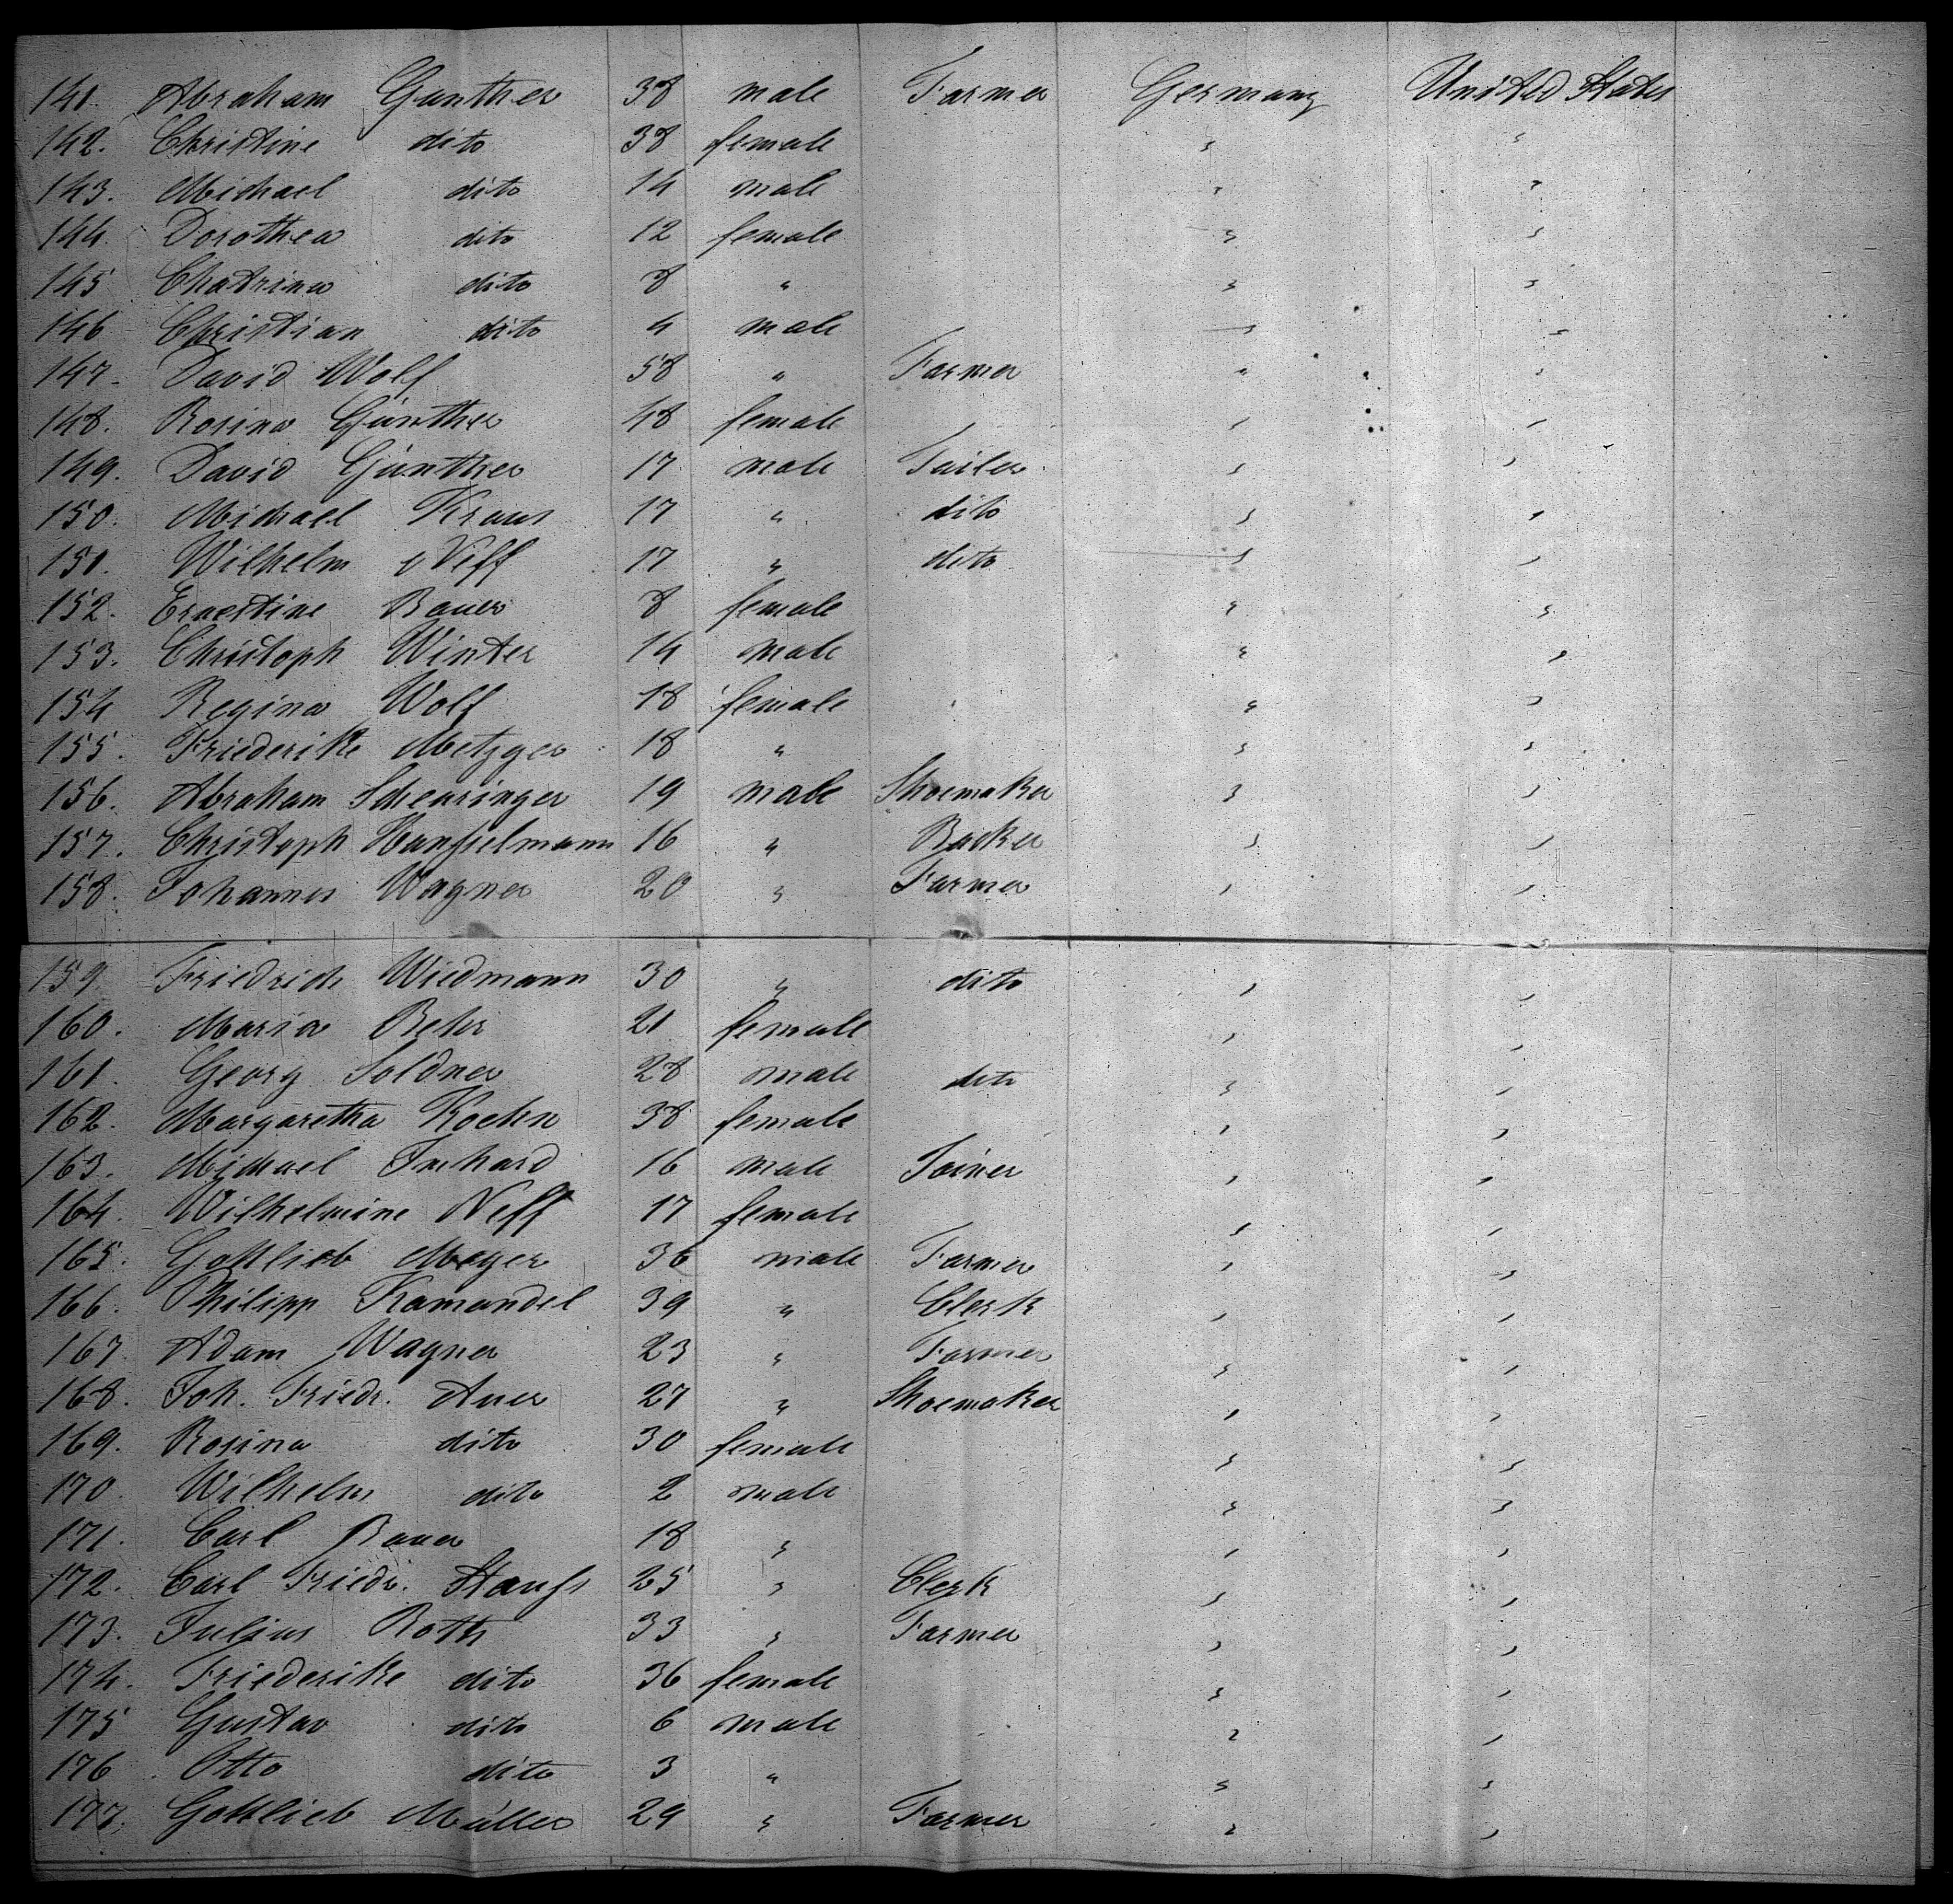 141. Abraham Gunther 38 male Farmer Germany United States
142. Christine dito 38 female " "
143. Michael dito 14 male " "
144. Dorothea dito 12 female " "
145 Chatrina dito 8 " " "
146 Christian dito 4 male " "
147. David Wolf 58 " Farmer " "
148. Rosina Günther 48 female " "
149. David Günther 17 male Tailer " "
150. Michael Kraus 17 " dito " "
151. Wilhelm Neff 17 " dito " "
152. Ernestine Bauer 8 female " "
153. Christoph Winter 14 male " "
154 Regina Wolf 18 female " "
155. Friederike Metzger 18 " " "
156. Abraham Scheuringer 19 male Shoemaker " "
157. Christoph Hanselmann 16 " Backer " "
158. Johannes Wagner 20 " Farmer " "
159. Friedrich Wiedmann 30 " dito " "
160. Maria Behr 21 female " "
161. Georg Soldner 28 male dito " "
162. Margaretha Koehn 38 female " "
163. Michael Imhard 16 male Joiner " "
164. Wilhelmine Neff 17 female " "
165. Gottlieb Mayer 36 male Farmer " "
166. Philipp Kamandel 39 " Clerk " "
167 Adam Wagner 23 " Farmer " "
168. Joh. Friedr. Auer 27 " Shoemaker " "
169. Rosina dito 30 female " "
170. Wilhelm dito 2 male " "
171. Carl Bauer 18 " " "
172. Carl Friedr. 25 " Clerk " "
173. Julius Roth 33 " Farmer " "
174. Friederike dito 36 female " "
175 Gustav dito 6 male " "
176. Otto dito 3 " " "
177. Gottlieb Müller 29 " Farmer " "